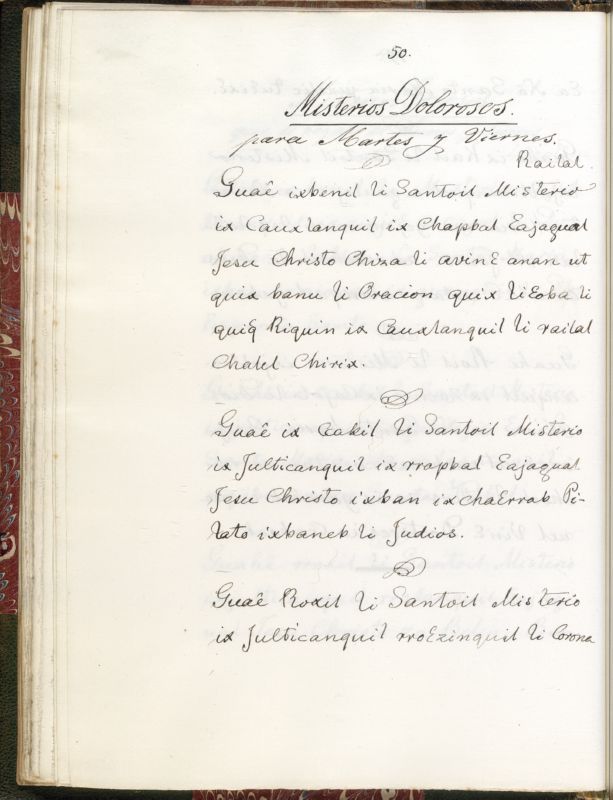 50.
Misterios Dolorosos.
para Martes y Viernes.
Railal.
Guaê ixbenil li Santoil Misterio
ix Cauxlanquil ix Chapbal Eajagual
Jesu Christo Chiza li avinE anan ut
quix banu li Oracion quix liEoba li
quiq Riquin ix Cauxlanquil li railal
Chalel Chirix.
Guaê ix Cakil li Santoil Misterio
ix Julticanquil ix rrapbal Eajagual
Jesu Christo ixban ix chaErrab Pi-
lato ixbaneb li Judios.
Guaê Roxil li Santoil Misterio
ix Julticanquil rroEzinquil li Corona